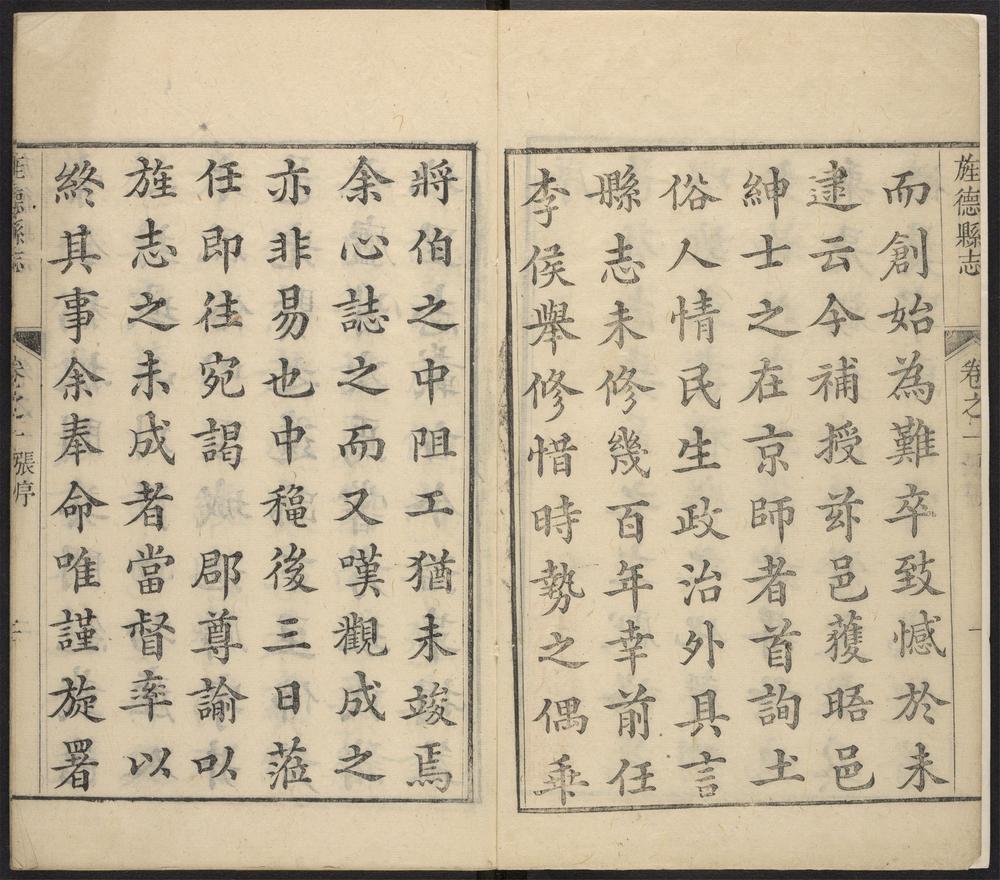 旌德縣志
卷之一
一
而創始為難卒致憾於未
逮云今補授茲邑獲晤邑
紳士之在京師者首詢土
俗人情民生政治外具言
縣志未修幾百年幸前任
李侯舉修惜時勢之偶乖
將伯之中阻工猶未竣焉
余心誌之而又嘆觀成之
亦非易也中龝後三日蒞
任即往宛謁郡尊諭以
旌志之未成者當督率以
終其事余奉命唯謹旋署
旌德縣志
卷之一張序